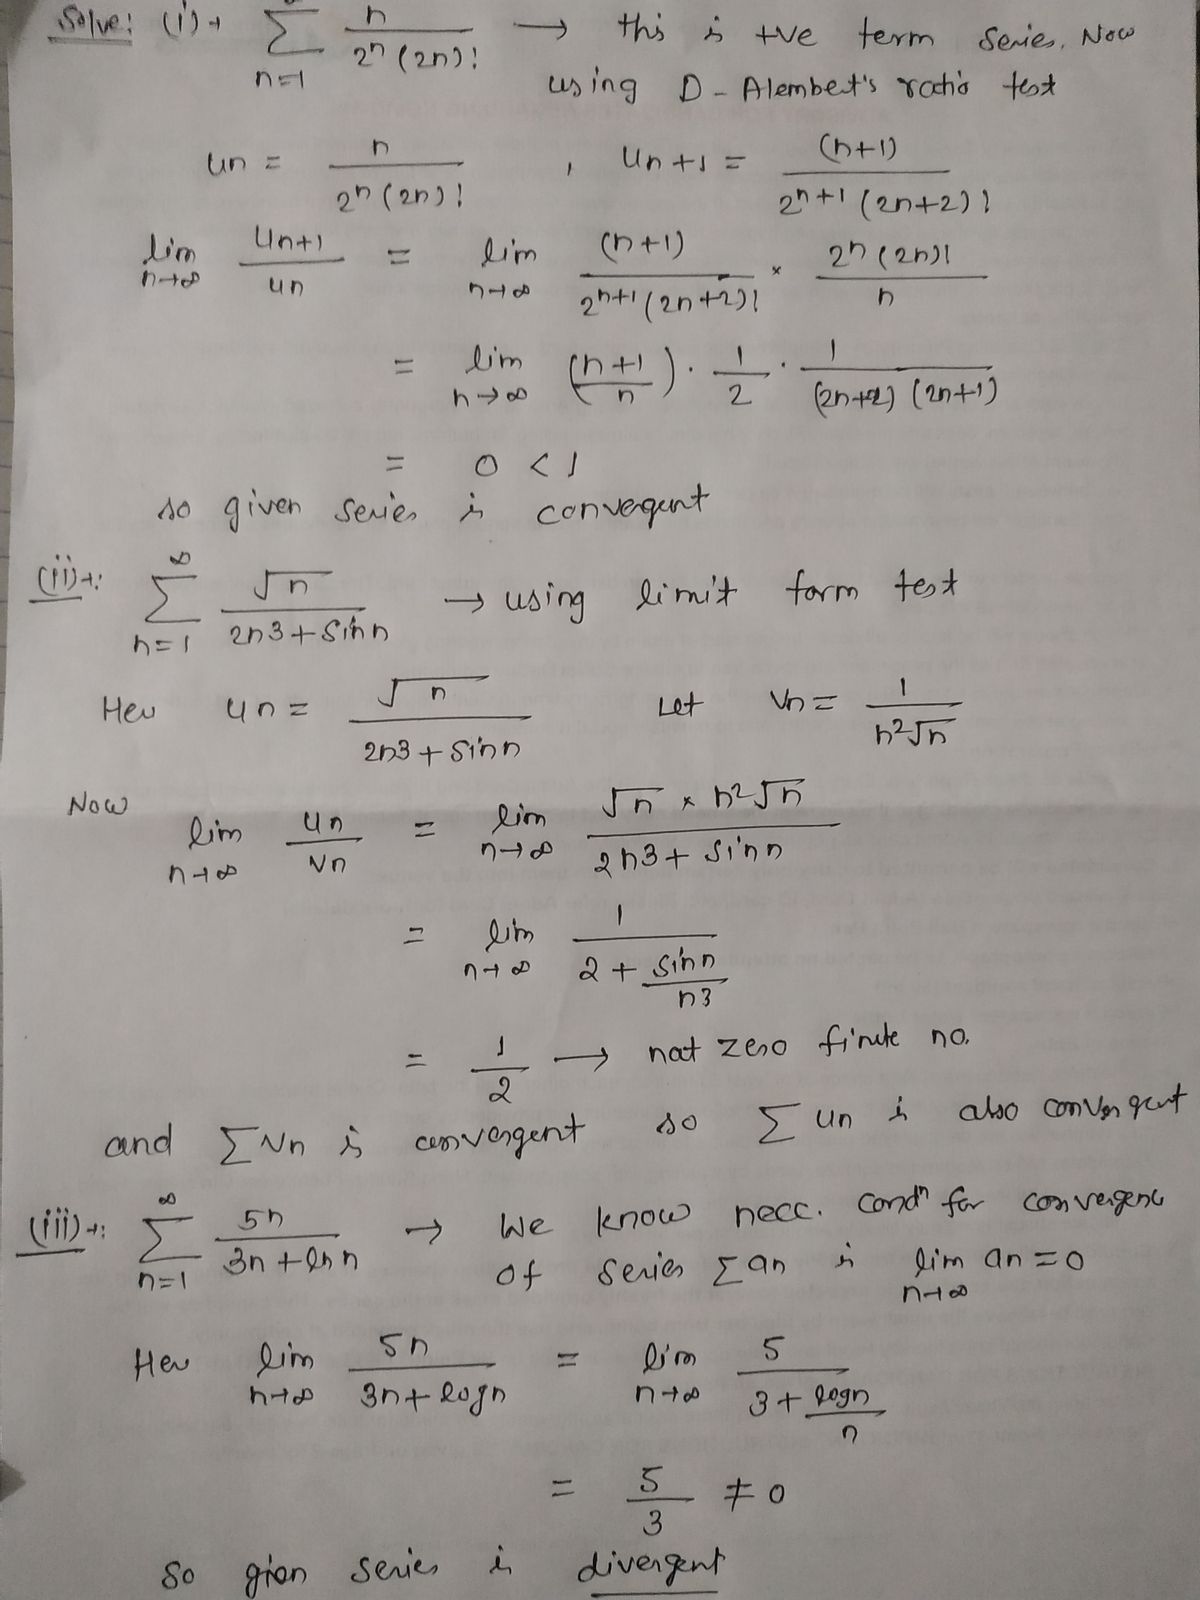 Solve: (i)→ ∑ n=1 n / 2^n (2n)! → this is +ve term series. Now
using D-Alembert's ratio test
un = n / 2^n (2n)! , un+1 = (n+1) / 2^n+1 (2n+2)!
lim n→∞ un+1 / un = lim n→∞ (n+1) / 2^n+1 (2n+2)! × 2^n (2n)! / n
= lim n→∞ (n+1 / n) · 1/2 · 1 / (2n+2) (2n+1)
= 0 < 1
so given series is convergent
(ii)→: ∑ n=1 ∞ √n / 2n3 + Sinn → using limit form test
Her un = √n / 2n3 + Sinn Let Vn = 1 / n²√n
Now lim n→∞ un / Vn = lim n→∞ √n × n²√n / 2n3 + Sinn
= lim n→∞ 1 / 2 + Sinn / n3
= 1/2 → not zero finite no.
and ∑Vn is convergent so ∑ un is also convergent
(iii)→: ∑ n=1 ∞ 5n / 3n + ln n → We know necc. condn for convergence
of series ∑an is lim n→∞ an = 0
Her lim n→∞ 5n / 3n + logn = lim n→∞ 5 / 3 + logn / n
= 5/3 ≠ 0
So gion series is divergent